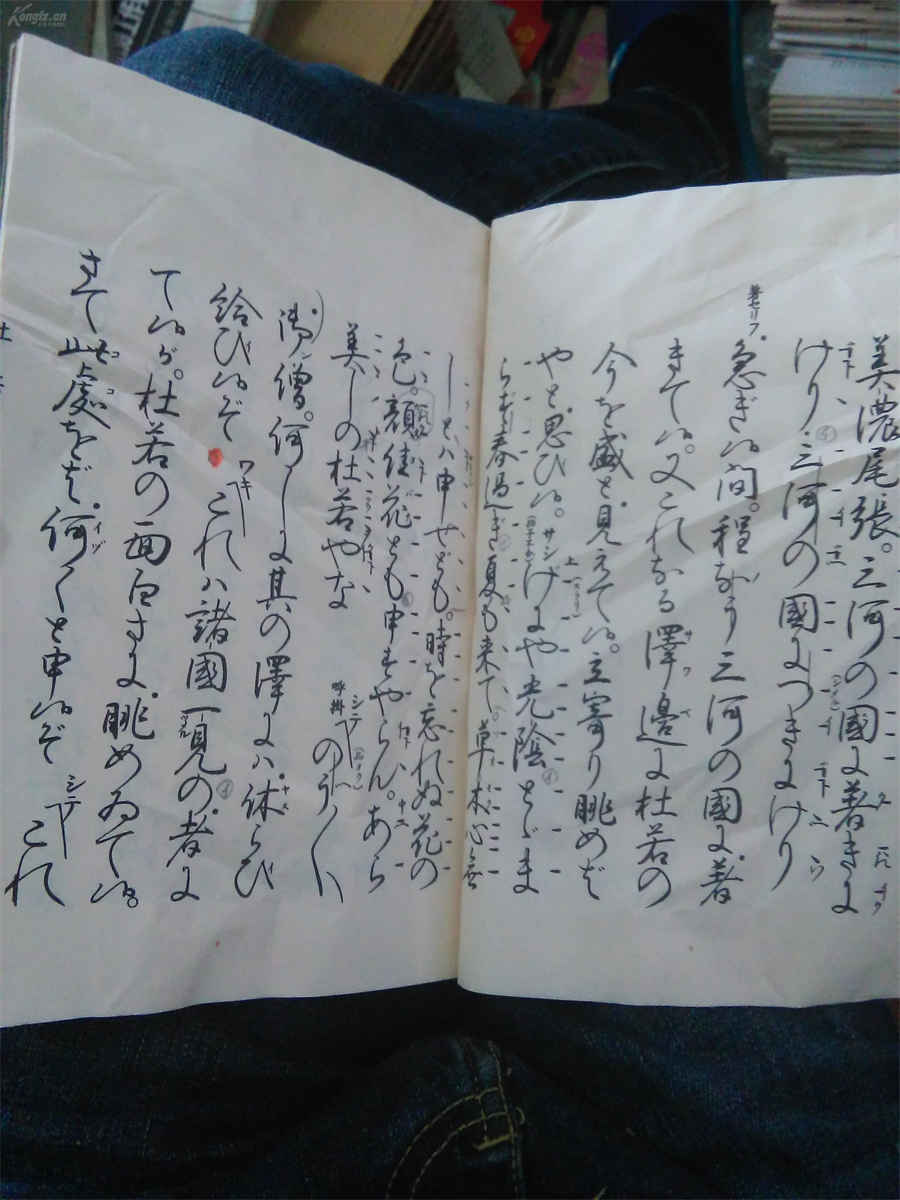 美濃尾張。三河の國に著きに
けり三河の國につきにけり
著セリフ 急ぎ候間。程なう三河の國に著
きて候。又これなる澤邊に杜若の
今を盛と見えて候。立寄り眺めば
やと思ひ候。サシ 上 げにや光陰とゞま
らず春過ぎ夏も来て。草木心無
しとは申せども。時を忘れぬ花の
色。顔佳花とも申すやらん。あら
美しの杜若やな シテ 呼掛 のう〳〵
御僧。何しに其の澤には休らひ
給ひ候ぞ ワキ これは諸國一見の者に
て候が。杜若の面白さに眺めゐて候。
さて此處をば何くと申候ぞ シテ これ
Kongfz.cn